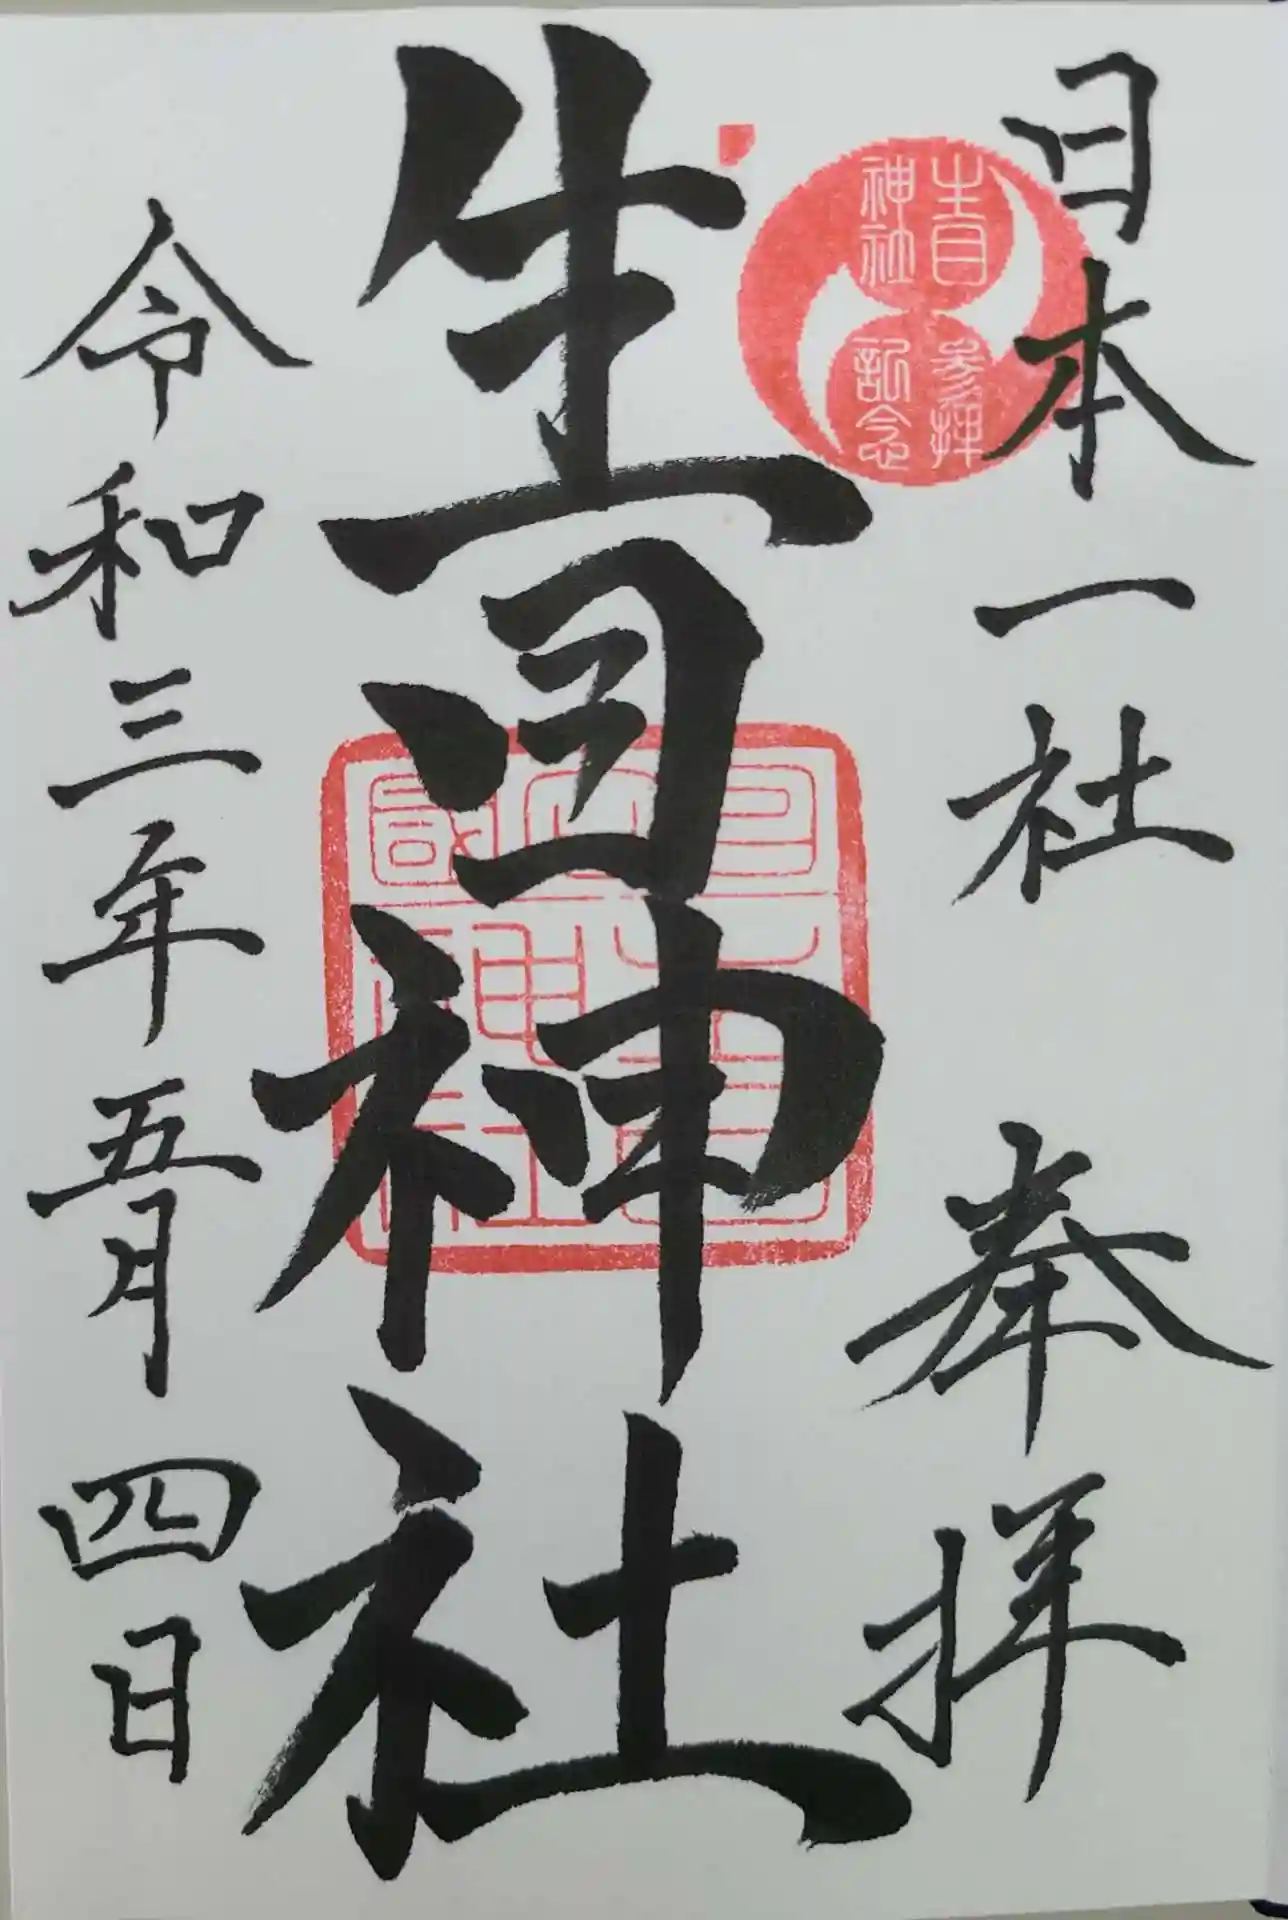 日本一社 奉拝
生目神社
参拝
記念
生目
神社
令和三年五月四日